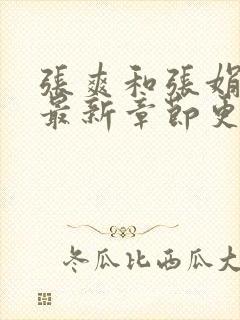 張爽和張娟
最新章節更
冬瓜比西瓜大